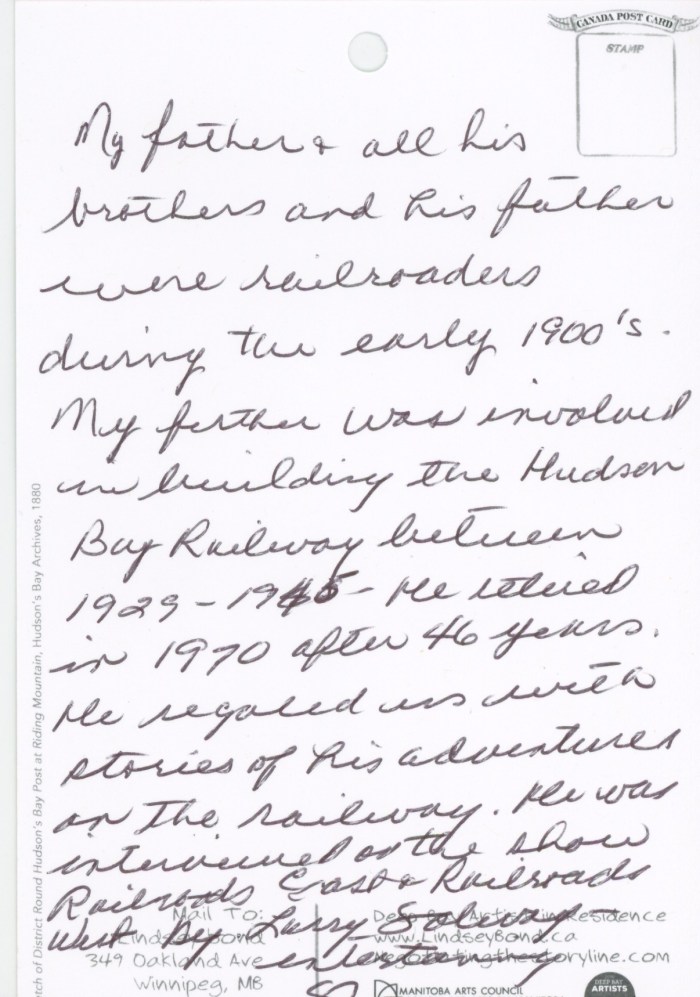 CANADA POST CARD
STAMP
My father & all his
brothers and his father
were railroaders
during the early 1900's.
My father was involved
in building the Hudson
Bay Railway between
1929 - 1945 - He retired
in 1970 after 46 years.
He regaled us with
stories of his adventures
on the railway. He was
interviewed on the show
Railroads East & Railroads
West by Larry
Mail To:
Lindsey Bond
349 Oakland Ave
Winnipeg, MB
Deep Bay Artist in Residence
www.LindseyBond.ca
negotiatingthestoryline.com
MANITOBA ARTS COUNCIL
DEEP BAY
ARTISTS
tch of District Round Hudson's Bay Post at Riding Mountain, Hudson's Bay Archives, 1880